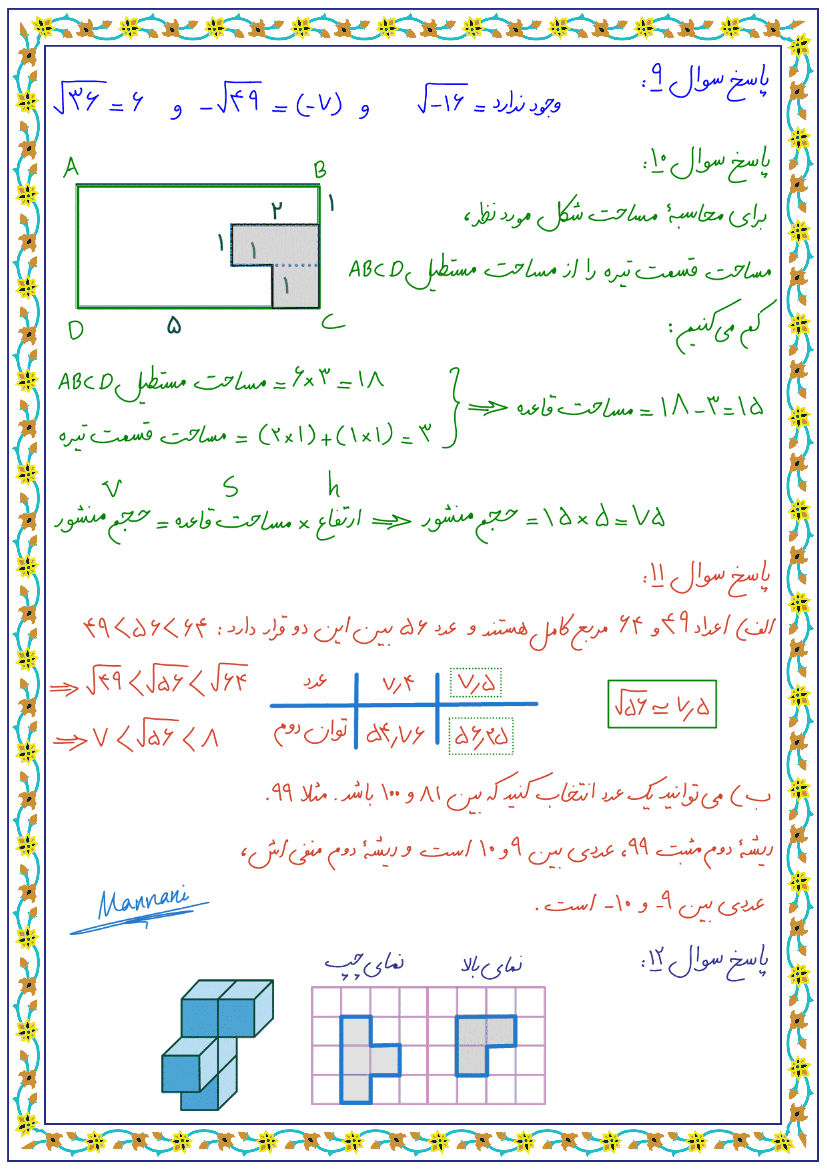 پاسخ سوال ۹:
√۳۶ = ۶ و -√۴۹ = (-۷) و √-۱۶ = وجود ندارد
پاسخ سوال ۱۰:
برای محاسبهٔ مساحت شکل مورد نظر،
مساحت قسمت تیره را از مساحت مستطیل ABCD
کم می‌کنیم:
A B
۲ ۱
۱ ۱
۱
D ۵ C
ABCD مساحت مستطیل = ۶×۳ = ۱۸
مساحت قسمت تیره = (۲×۱)+(۱×۱) = ۳
⇒ مساحت قاعده = ۱۸-۳ = ۱۵
V S h
حجم منشور = مساحت قاعده × ارتفاع ⇒ حجم منشور = ۱۵×۵ = ۷۵
پاسخ سوال ۱۱:
الف) اعداد ۴۹ و ۶۴ مربع کامل هستند و عدد ۵۶ بین این دو قرار دارد: ۴۹<۵۶<۶۴
⇒ √۴۹ < √۵۶ < √۶۴
⇒ ۷ < √۵۶ < ۸
عدد ۷٫۴ ۷٫۵
توان دوم ۵۴٫۷۶ ۵۶٫۲۵
√۵۶ ≃ ۷٫۵
ب) می‌توانید یک عدد انتخاب کنید که بین ۸۱ و ۱۰۰ باشد. مثلا ۹۹.
ریشهٔ دوم مثبت ۹۹، عددی بین ۹ و ۱۰ است و ریشهٔ دوم منفی اش،
عددی بین ۹- و ۱۰- است.
Mannani
پاسخ سوال ۱۲:
نمای بالا نمای چپ